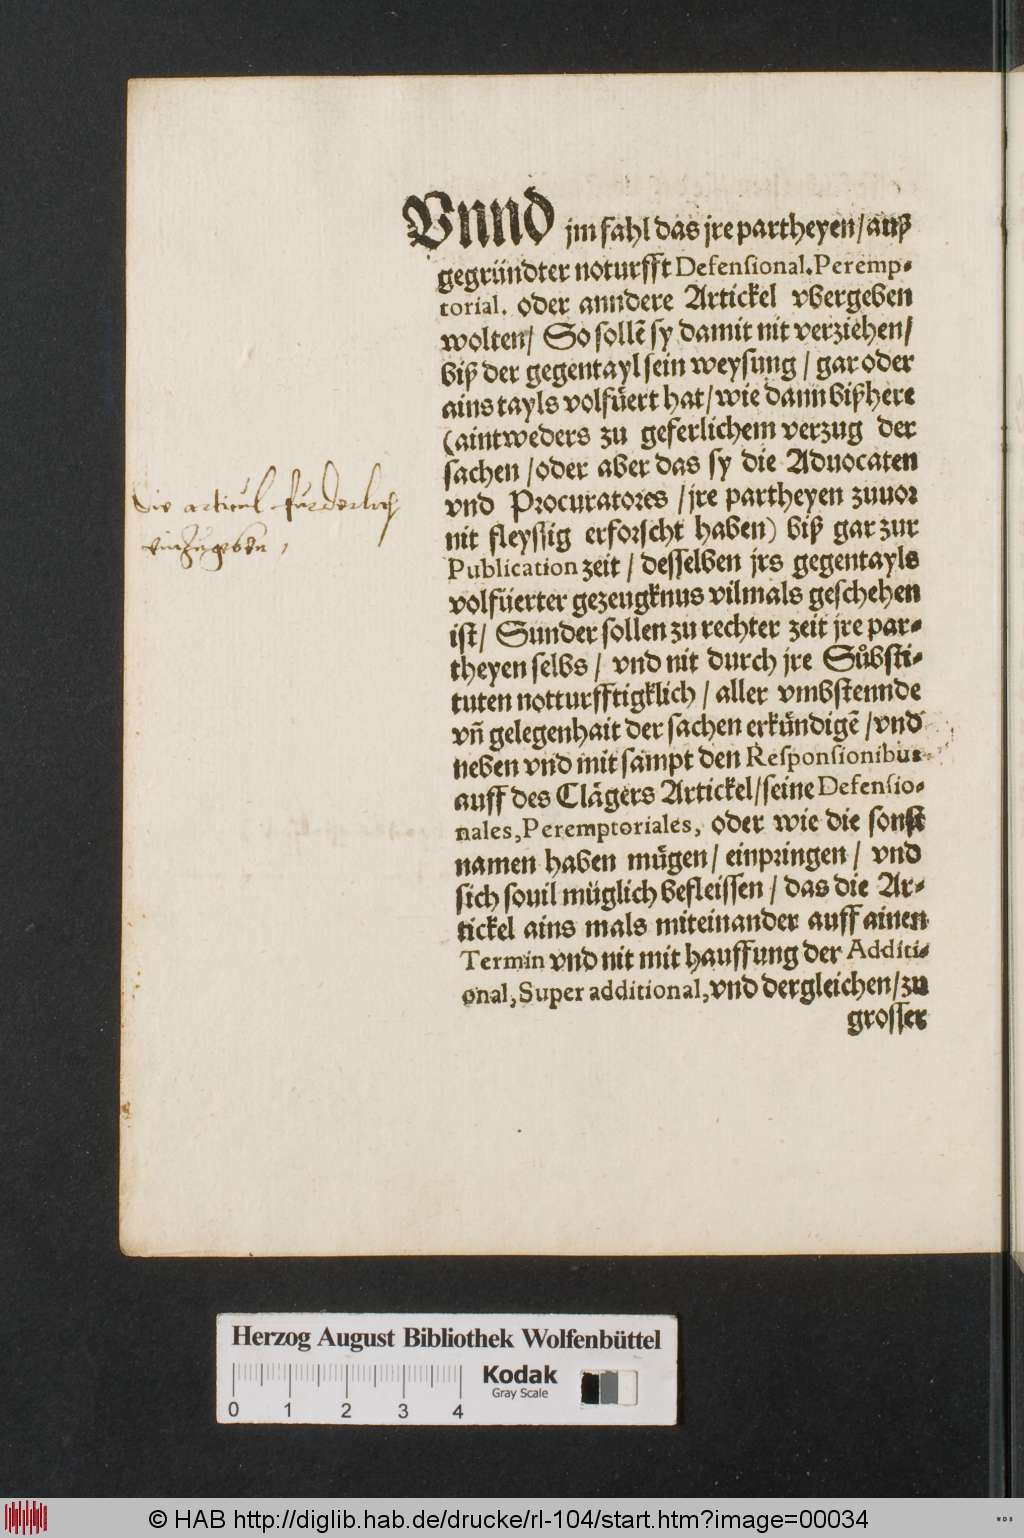 Vnnd jm fahl das jre partheyen/auß
gegründter noturfft Defensional. Peremp-
torial. oder anndere Artickel vbergeben
wolten/ So sollẽ sy damit nit verziehen/
biß der gegentayl sein weysung / gar oder
ains tayls volfüert hat/wie dann bißhere
(aintweders zu geferlichem verzug der
sachen /oder aber das sy die Aduocaten
vnd Procuratores /jre partheyen zuuor
nit fleyssig erforscht haben) biß gar zur
Publication zeit / desselben jrs gegentayls
volfüerter gezeugknus vilmals geschehen
ist/ Sunder sollen zu rechter zeit jre par-
theyen selbs / vnd nit durch jre Sůbsti-
tuten notturfftigklich / aller vmbstennde
vñ gelegenhait der sachen erkündigẽ /vnd
neben vnd mit sampt den Responsionibus
auff des Clägers Artickel/seine Defensio-
nales, Peremptoriales, oder wie die sonst
namen haben mügen/ einpringen / vnd
sich souil müglich befleissen / das die Ar-
tickel ains mals miteinander auff ainen
Termin vnd nit mit hauffung der Additi-
onal, Super additional, vnd dergleichen/zu
grosser
die articul furderlich
einzugeben,
Herzog August Bibliothek Wolfenbüttel
Kodak
Gray Scale
0 1 2 3 4
© HAB http://diglib.hab.de/drucke/rl-104/start.htm?image=00034